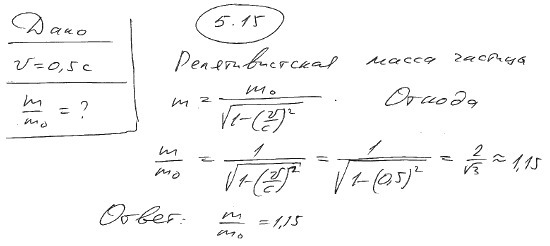 Дано
5.15
v=0,5c
m/m₀ = ?
Релятивистская масса частицы
m = m₀/√(1-(v/c)²). Откуда
m/m₀ = 1/√(1-(v/c)²) = 1/√(1-(0,5)²) = 2/√3 ≈ 1,15
Ответ: m/m₀ = 1,15